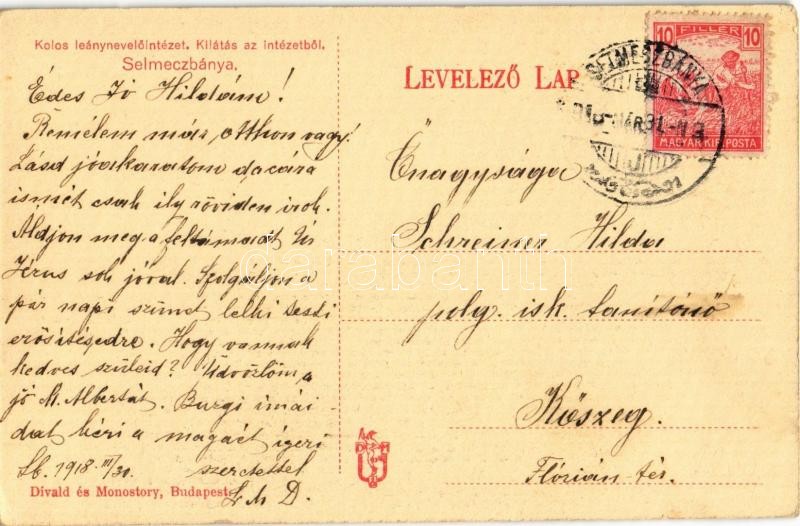 Kolos leánynevelőintézet. Kilátás az intézetből.
Selmeczbánya.
Édes Jó Hildám!
Remélem már otthon vagy.
Lásd jóakaratom dacára
ismét csak ily röviden irok.
Áldjon meg a feltámadt Úr
Jézus sok jóval. Szolgáljon a
pár napi szünet lelki testi
erősítésedre. Hogy vannak
kedves szüleid? Üdvözlöm a
jó M. Albertát. Burgi imái-
dat kéri a magáét igéri
Sb. 1918. III/30. szeretettel
L M D.
Divald és Monostory, Budapest.
LEVELEZŐ LAP
SELMECZBÁNYA
MÁR 31
10 FILLÉR 10
MAGYAR KIR. POSTA
Őnagysága
Schreiner Hilda
polg. isk. tanítónő
Kőszeg.
Flórián-tér.
darabanth